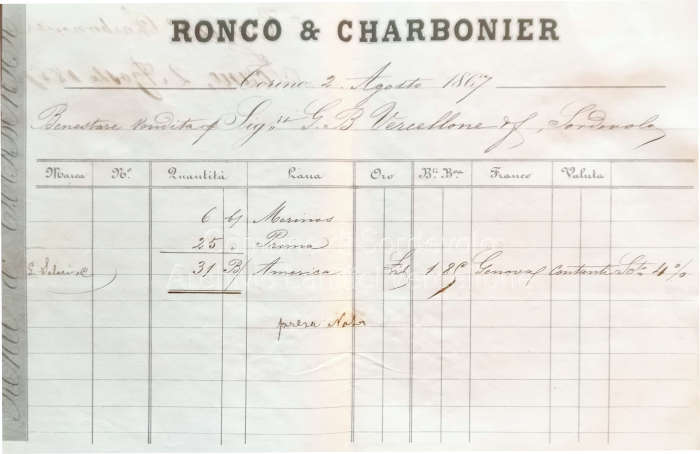 RONCO & CHARBONIER
Torino 2 Agosto 1867
Benestare vendita Sig.ri G. B. Vercellone & f. Sordevolo
Marca N.º Quantità Lana Oro B.ti B.oa Franco Valuta
6 b/ Merinos
25 " Prima
31 B/ America 1.80 Genova contanti Sto 4 %
presa Nota